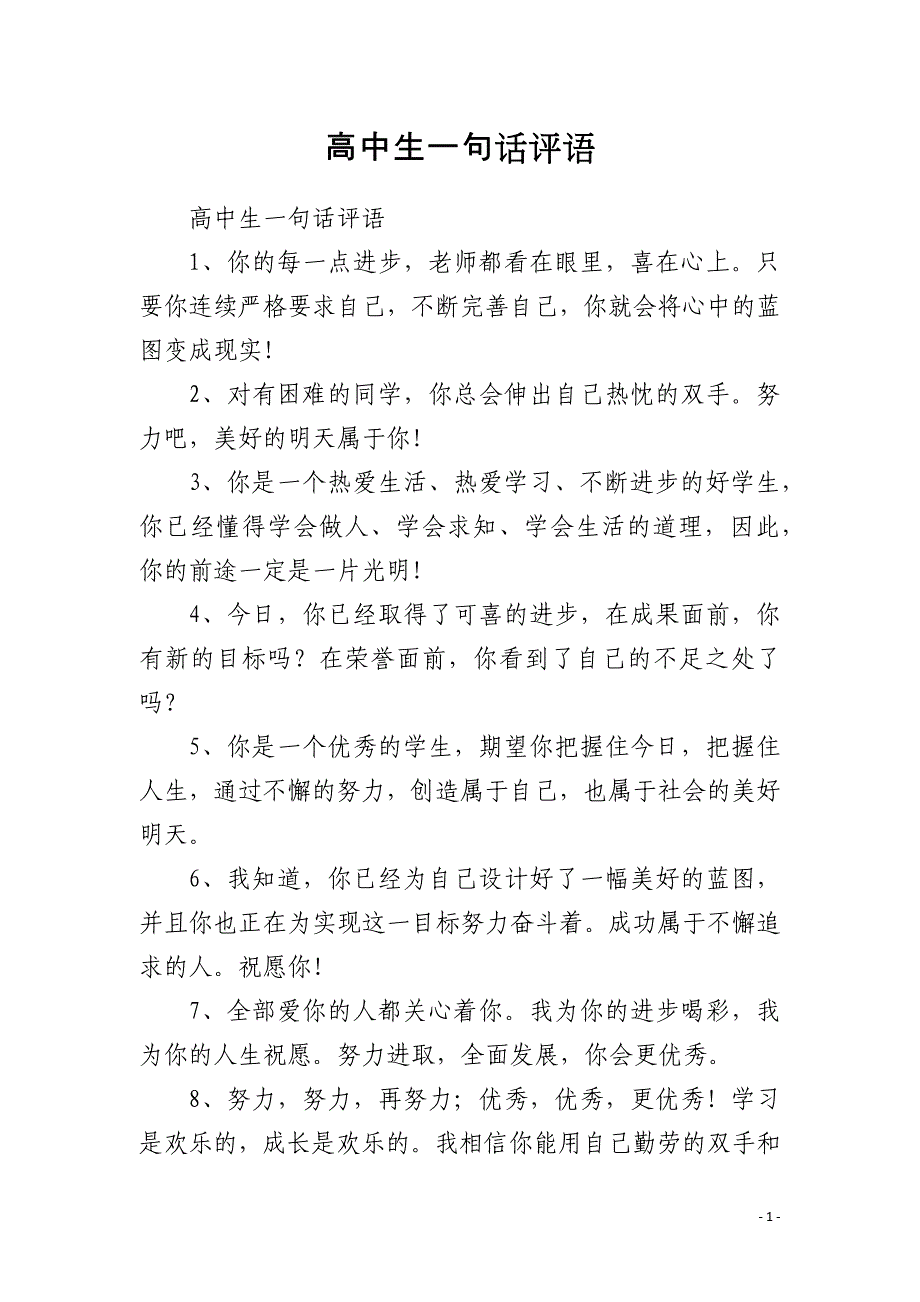 高中生一句话评语
高中生一句话评语
1、你的每一点进步，老师都看在眼里，喜在心上。只
要你连续严格要求自己，不断完善自己，你就会将心中的蓝
图变成现实！
2、对有困难的同学，你总会伸出自己热忱的双手。努
力吧，美好的明天属于你！
3、你是一个热爱生活、热爱学习、不断进步的好学生，
你已经懂得学会做人、学会求知、学会生活的道理，因此，
你的前途一定是一片光明！
4、今日，你已经取得了可喜的进步，在成果面前，你
有新的目标吗？在荣誉面前，你看到了自己的不足之处了
吗？
5、你是一个优秀的学生，期望你把握住今日，把握住
人生，通过不懈的努力，创造属于自己，也属于社会的美好
明天。
6、我知道，你已经为自己设计好了一幅美好的蓝图，
并且你也正在为实现这一目标努力奋斗着。成功属于不懈追
求的人。祝愿你！
7、全部爱你的人都关心着你。我为你的进步喝彩，我
为你的人生祝愿。努力进取，全面发展，你会更优秀。
8、努力，努力，再努力；优秀，优秀，更优秀！学习
是欢乐的，成长是欢乐的。我相信你能用自己勤劳的双手和
- 1 -